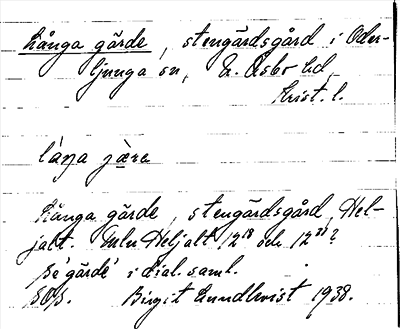 Långa gärde, stengärdsgård i Oder-
ljunga sn, N. Åsbo hd,
Krist. l.
laŋa jæra
Långa gärde, stengärdsgård, Hel-
jalt. Mln Heljalt 12¹⁸ och 12³¹?
se 'gärde' i dial. saml.
Birgit Lundkvist 1938.